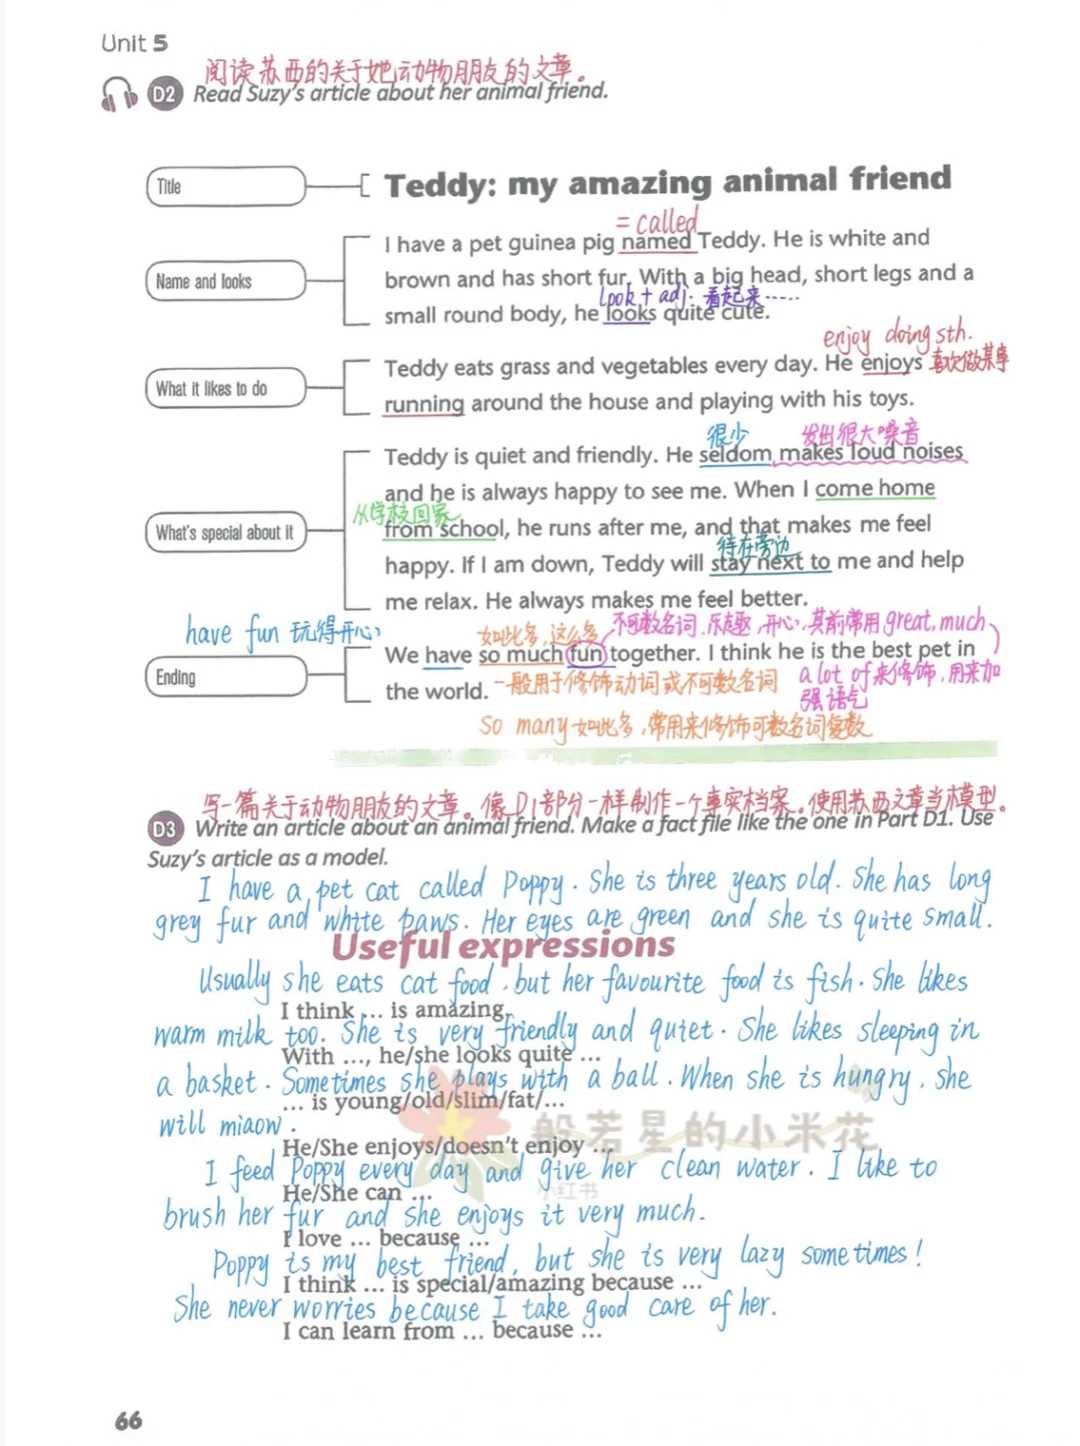 Unit 5
阅读苏西的关于她动物朋友的文章。
D2 Read Suzy's article about her animal friend.
Title
Teddy: my amazing animal friend
= called
I have a pet guinea pig named Teddy. He is white and
Name and looks
brown and has short fur. With a big head, short legs and a
look + adj. 看起来……
small round body, he looks quite cute.
enjoy doing sth.
Teddy eats grass and vegetables every day. He enjoys 喜欢做某事
What it likes to do
running around the house and playing with his toys.
很少 发出很大噪音
Teddy is quiet and friendly. He seldom makes loud noises
and he is always happy to see me. When I come home
从学校回家
What's special about it
from school, he runs after me, and that makes me feel
待在旁边
happy. If I am down, Teddy will stay next to me and help
me relax. He always makes me feel better.
have fun 玩得开心
如此多,这么多 不可数名词,乐趣,开心,其前常用great, much
We have so much fun together. I think he is the best pet in
Ending
the world. 一般用于修饰动词或不可数名词 a lot of来修饰,用来加
强语气
So many 如此多,常用来修饰可数名词复数
写一篇关于动物朋友的文章。像D1部分一样制作一个事实档案。使用苏西文章当模型。
D3 Write an article about an animal friend. Make a fact file like the one in Part D1. Use
Suzy's article as a model.
I have a pet cat called Poppy. She is three years old. She has long
grey fur and white paws. Her eyes are green and she is quite small.
Useful expressions
Usually she eats cat food, but her favourite food is fish. She likes
I think ... is amazing.
warm milk too. She is very friendly and quiet. She likes sleeping in
With ..., he/she looks quite ...
a basket. Sometimes she plays with a ball. When she is hungry, she
... is young/old/slim/fat/...
will miaow.
般若星的小米花
He/She enjoys/doesn't enjoy ...
I feed Poppy every day and give her clean water. I like to
小红书
He/She can ...
brush her fur and she enjoys it very much.
I love ... because ...
Poppy is my best friend, but she is very lazy sometimes!
I think ... is special/amazing because ...
She never worries because I take good care of her.
I can learn from ... because ...
66